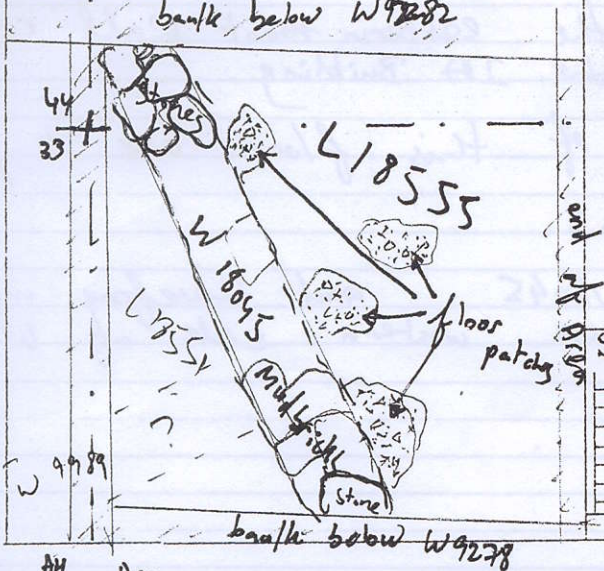 baulk below W9282
44
33
Stones
L18555
W18045
L18554
floor
patches
end of area
Mudbrick
Stone
W9989
baulk below W9278
AH